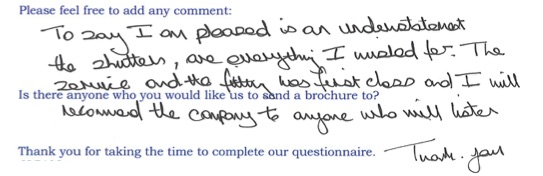 Please feel free to add any comment:
To say I am pleased is an understatement
the shutters, are everything I wished for. The
service and the fitting was first class and I will
Is there anyone who you would like us to send a brochure to?
recommend the company to anyone who will listen
Thank you for taking the time to complete our questionnaire. Thank you